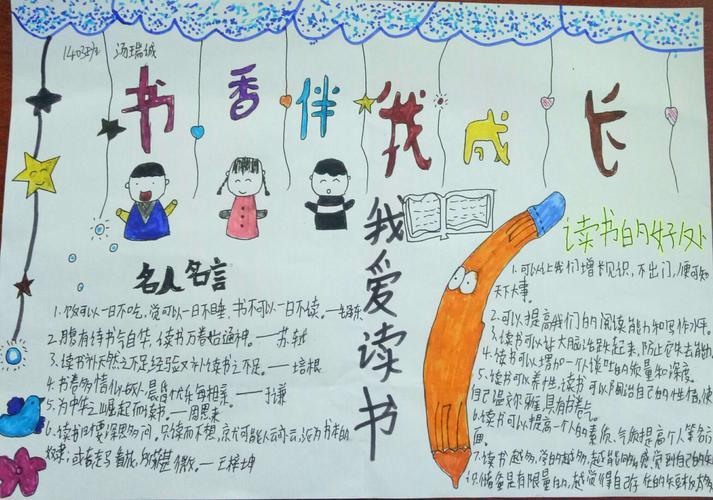 1403班 汤瑞
书香伴我成长
我爱读书
名人名言
1.饭可以一日不吃,觉可以一日不睡,书不可以一日不读。——毛泽东
2.腹有诗书气自华,读书万卷始通神。——苏轼
3.读书补天然之不足,经验又补读书之不足。——培根
4.书卷多情似故人,晨昏忧乐每相亲。——于谦
5.为中华之崛起而读书。——周恩来
6.读书时要深思多问,只读而不想,就可能人云亦云,沦为书本的
效果,或者走马看花,所获甚微。——王梓坤
读书的好处
1.可以让我们增长见识,不出门,便可知
天下大事。
2.可以提高我们的阅读能力和写作水平。
3.读书可以让大脑活跃起来,防止它失去能力
4.读书可以增加一个人谈吐的质量和深度。
5.读书可以养性,读书可以陶冶自己的性情,使
自己温文尔雅,具有书卷气。
6.读书可以提高一个人的素质、气质提高个人等方
面。
7.读书越多,学的越多,越能够感觉到自己的知
识储备是有限量的,越觉得自己存在的